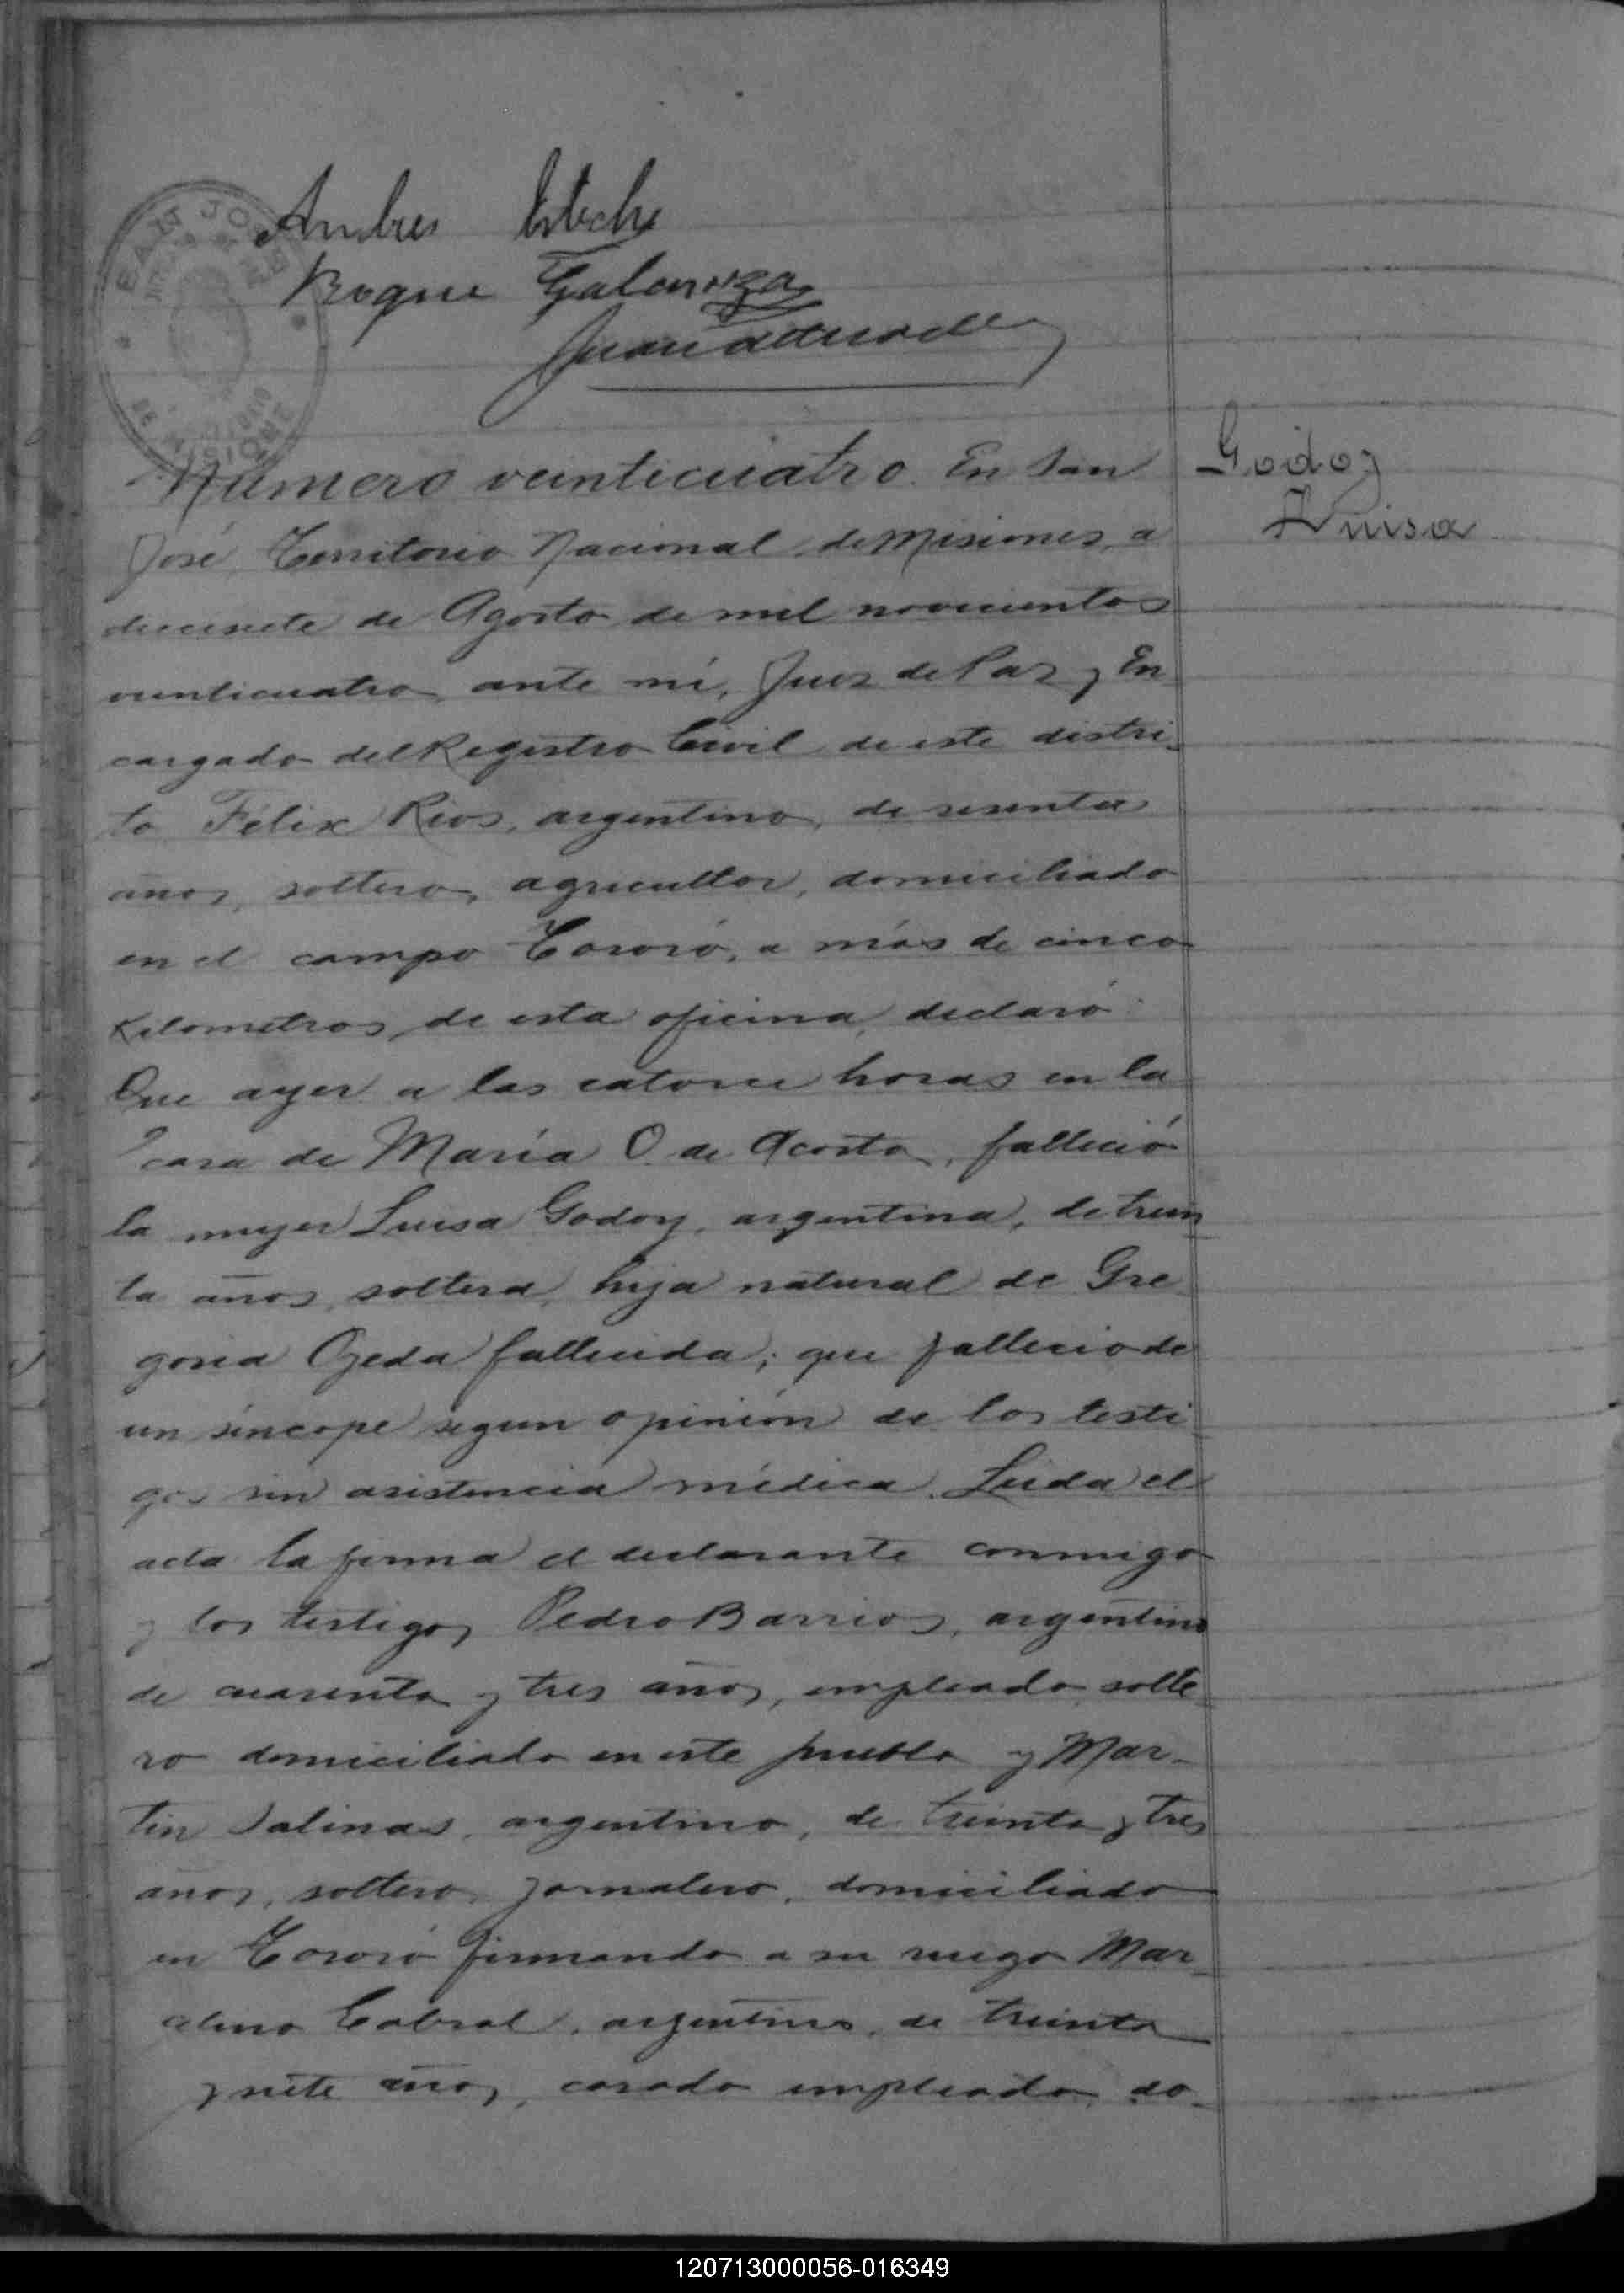 Andres
Roque Galarza
Juan
SAN JOSE
DE MISIONES
Número veinticuatro. En San
José, Territorio Nacional de Misiones, a
diecisiete de Agosto de mil novecientos
veinticuatro, ante mí, Juez de Paz y En
cargado del Registro Civil de este distri-
to Félix Rios, argentino, de sesenta
años, soltero, agricultor, domiciliado
en el campo Tororó, a más de cinco
kilometros de esta oficina, declaró:
Que ayer a las catorce horas en la
casa de María O. de Acosta, falleció
la mujer Luisa Godoy, argentina, de trein
ta años, soltera, hija natural de Gre
goria Ojeda fallecida; que fallecio de
un síncope segun opinión de los testi
gos sin asistencia médica. Leida el
acta la firma el declarante conmigo
y los testigos Pedro Barrios, argentino
de cuarenta y tres años, empleado, solte
ro domiciliado en este pueblo y Mar-
tin Salinas, argentino, de treinta y tres
años, soltero, jornalero, domiciliado
en Tororó firmando a su ruego Mar
celino Cabral, argentino, de treinta
y siete años, casado empleado, do-
Godoy
Luisa
120713000056-016349